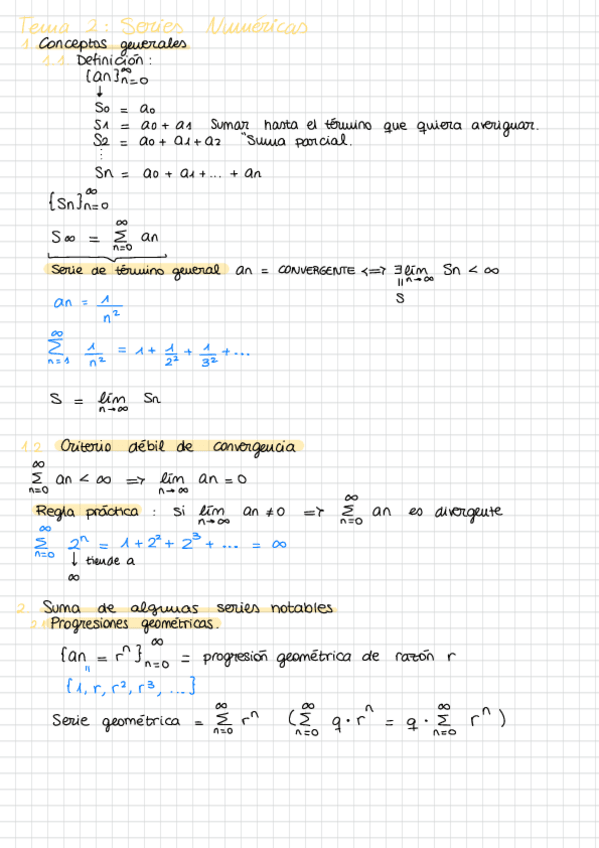 Tema 2: Series Numéricas
1 Conceptos generales
1.1 Definición:
{an}∞n=0
↓
S0 = a0
S1 = a0 + a1 Sumar hasta el término que quiera averiguar.
S2 = a0 + a1 + a2 "Suma parcial.
⋮
Sn = a0 + a1 + ... + an
{Sn}∞n=0
S∞ = ∞Σn=0 an
Serie de término general an = CONVERGENTE <=> ∃ lím n→∞ Sn < ∞
॥
S
an = 1/n²
∞Σn=1 1/n² = 1 + 1/2² + 1/3² + ...
S = lím n→∞ Sn
1.2 Criterio débil de convergencia
∞Σn=0 an < ∞ => lím n→∞ an = 0
Regla práctica : si lím n→∞ an ≠ 0 => ∞Σn=0 an es divergente
∞Σn=0 2ⁿ = 1 + 2² + 2³ + ... = ∞
↓ tiende a
∞
2. Suma de algunas series notables
2.1 Progresiones geométricas.
{an = rⁿ}∞n=0 = progresión geométrica de razón r
"
{1, r, r², r³, ...}
Serie geométrica = ∞Σn=0 rⁿ (∞Σn=0 q · rⁿ = q · ∞Σn=0 rⁿ)